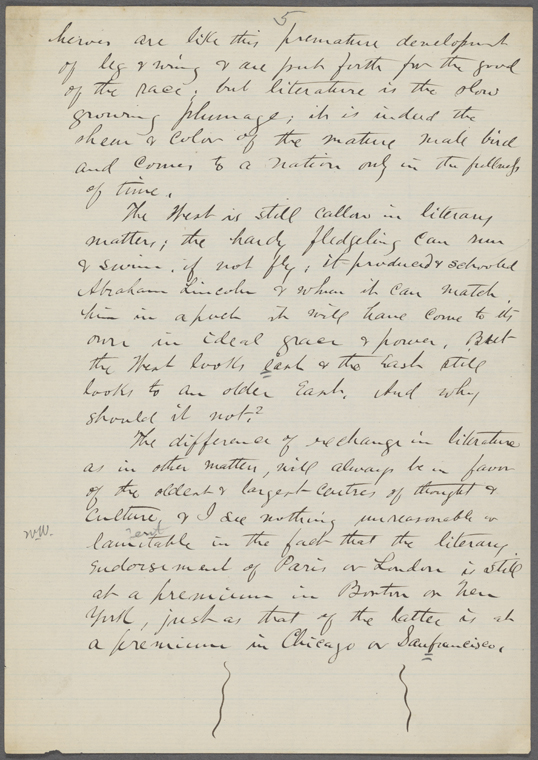 5
heroes are like this premature development
of leg & wing & are put forth for the good
of the race; but literature is the slow
growing plumage; it is indeed the
sheen & color of the mature male bird
and comes to a nation only in the fullness
of time.
The West is still callow in literary
matters; the hardy fledgeling can run
& swim, if not fly; it produced & schooled
Abraham Lincoln & when it can match
him in a poet it will have come to its
own in ideal grace & power. But
the West looks east & the East still
looks to an older East. And why
should it not?
The difference of exchange in literature
as in other matters, will always be in favor
of the oldest & largest centres of thought &
culture, & I see nothing unreasonable or
lamitable in the fact that the literary
endorsement of Paris or London is still
at a premium in Boston or New
York, just as that of the latter is at
a premium in Chicago or Sanfrancisco.